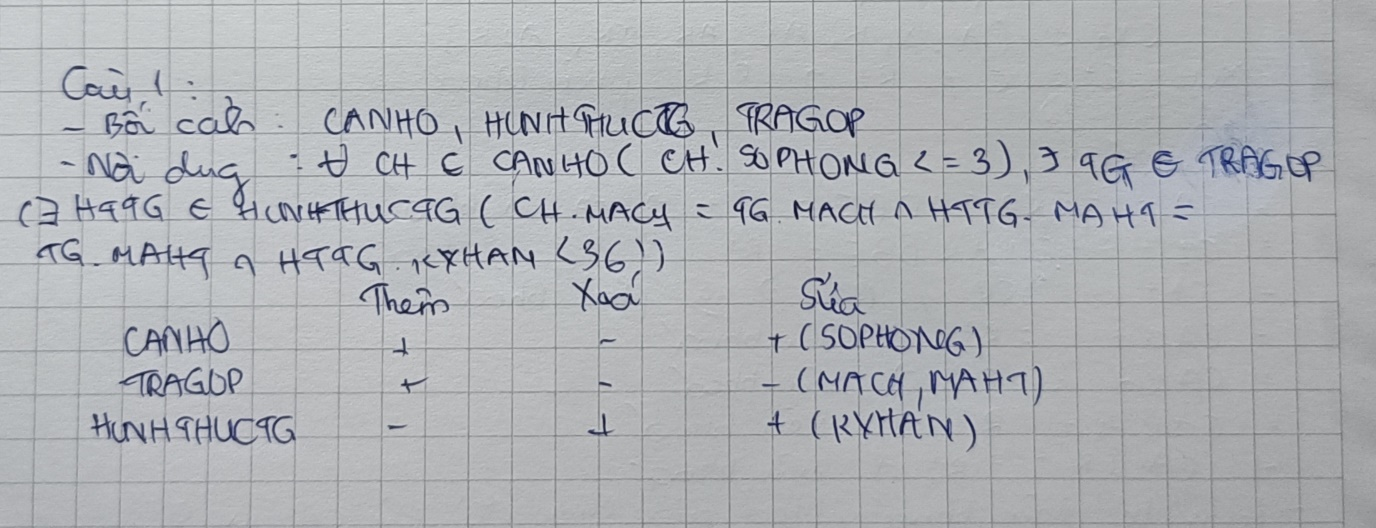 Câu 1 :
- Bối cảnh : CANHO, HINHTHUCTG, TRAGOP
- Nội dung : ∀ CH ∈ CANHO ( CH. SOPHONG <= 3 ), ∃ TG ∈ TRAGOP
(∃ HTTG ∈ HINHTHUCTG ( CH.MACH = TG. MACH ∧ HTTG. MAHT =
TG. MAHT ∧ HTTG. KYHAN < 36 ))
Thêm Xoá Sửa
CANHO + - + (SOPHONG)
TRAGOP + - - (MACH, MAHT)
HINHTHUCTG - + + (KYHAN)